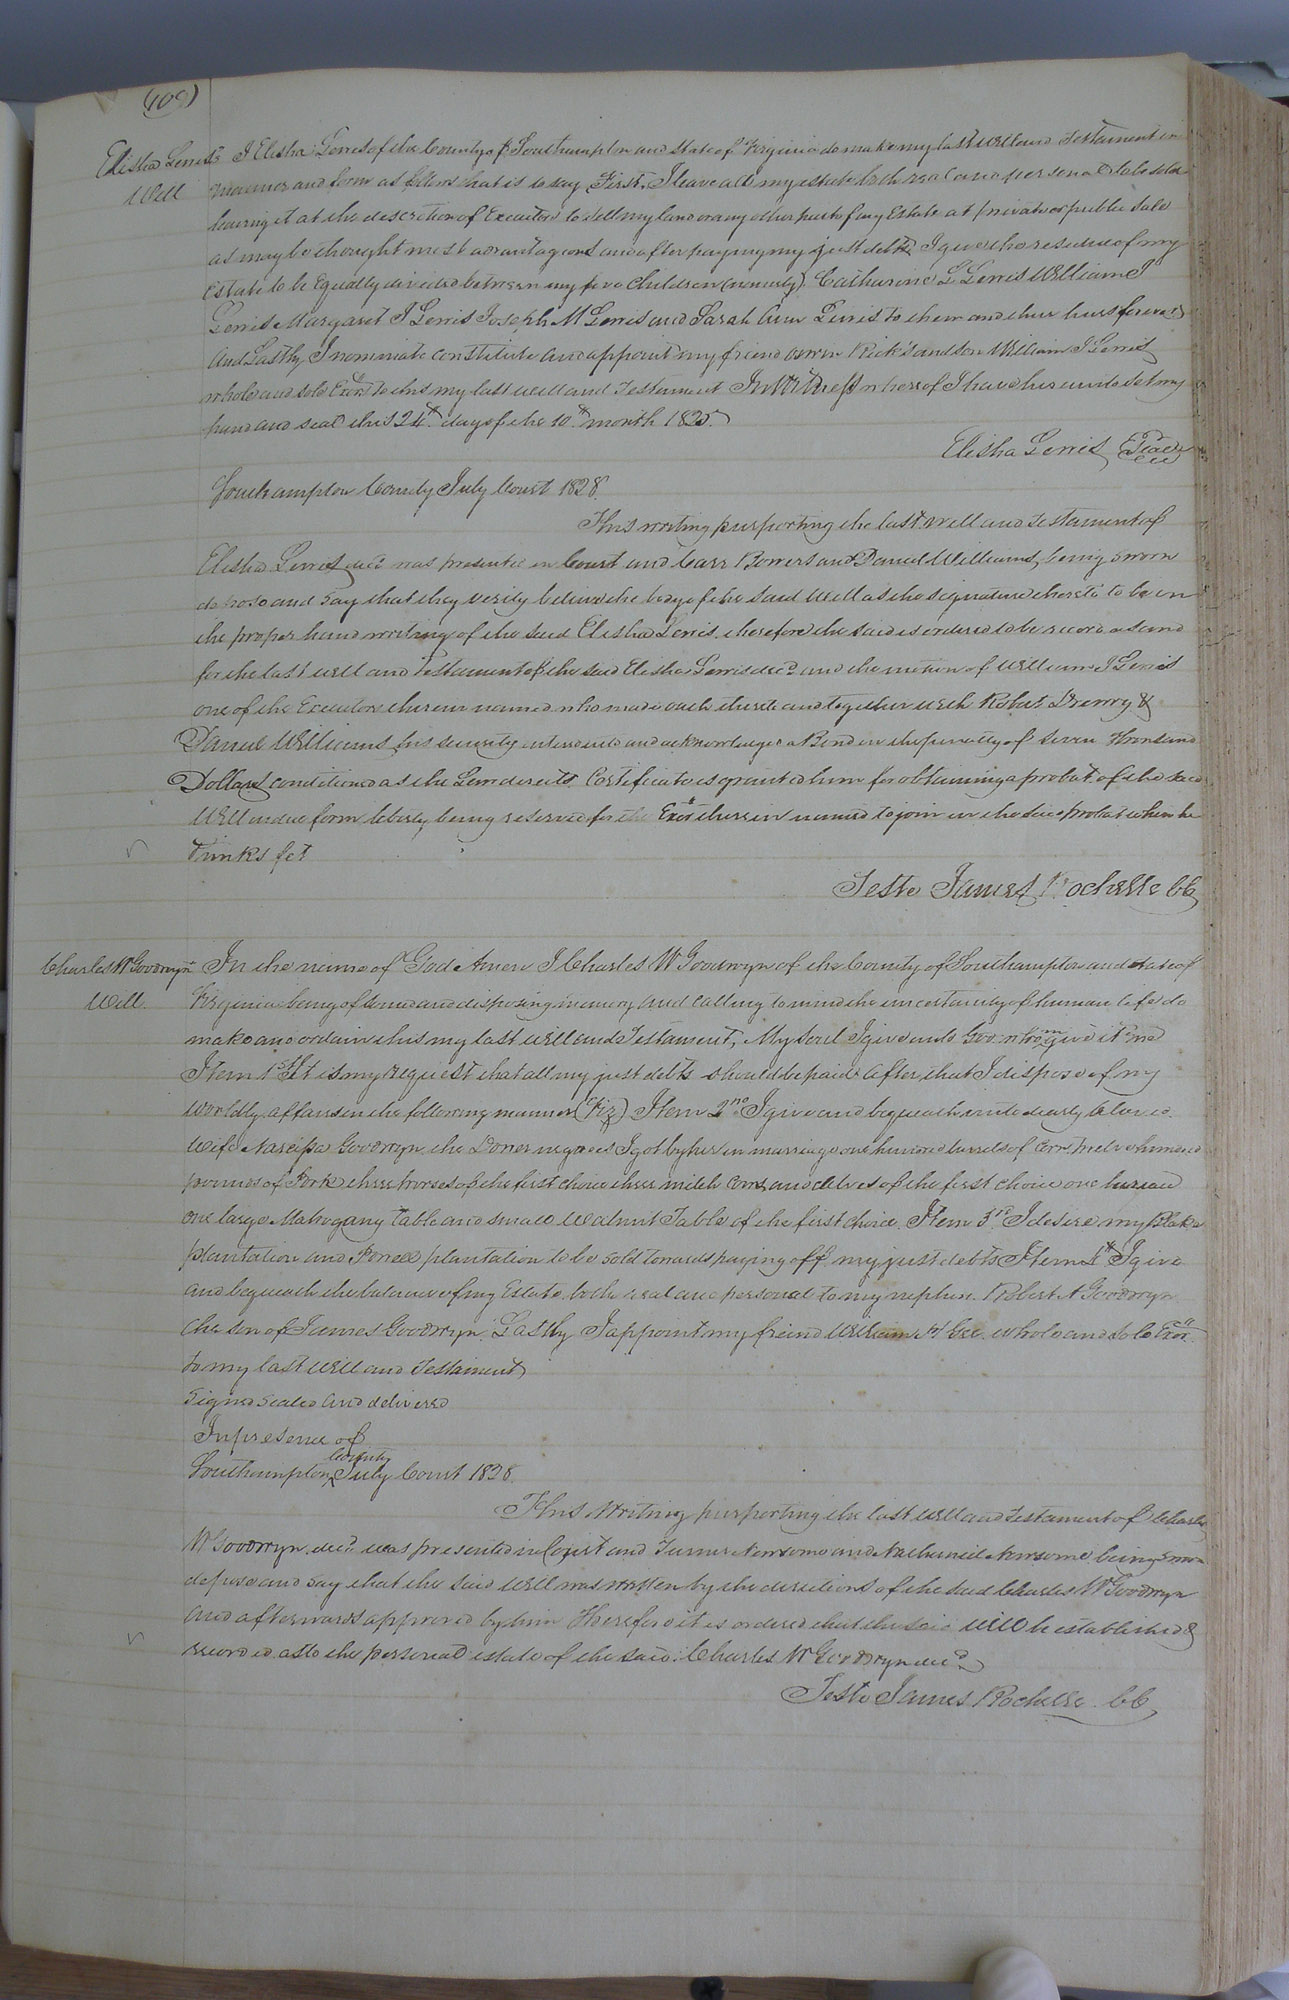 (109)
Elisha Lewis's I Elisha Lewis of the County of Southampton and State of Virginia do make my last Will and Testament in
Will manner and form as follows that is to say First, I leave all my estate both real and personal to be sold
leaving it at the descretion of Executors to sell my land or any other part of my Estate at private or public sale
as may be thought most advantageous and after paying my just debts I give the residue of my
Estate to be Equally divided between my five Children (namely) Catharine L Lewis William J
Lewis Margaret J Lewis Joseph M Lewis and Sarah Ann Lewis to them and their heirs forever
And Lastly I nominate constitute and appoint my friend Ricks and son William J Lewis
whole and sole Exors to this my last will and Testament In Witness whereof I have hereunto set my
hand and seal this 24th day of the 10th month 1825
Elisha Lewis Seal
Southampton County July Court 1828.
This writing purporting the last will and testament of
Elisha Lewis decd was presented in Court and Carr Bowers and Daniel Williams, being sworn
depose and say that they verily believe the body of the said Will as the signature thereto to be in
the proper hand writing of the said Elisha Lewis, therefore the said is ordered to be recorded as and
for the last will and testament of the said Elisha Lewis decd and the motion of William J Lewis
one of the Executors therein named who made oath thereto and together with Robert Drewry &
Daniel Williams his security entered into and acknowledged a Bond in the penalty of Seven Thousand
Dollars conditioned as the Law directs Certificate is granted him for obtaining a probat of the said
Will in due form liberty being reserved for the Exor therein named to join in the said probat when he
thinks fet
Teste James Rochelle CC
Charles W Goodwyn In the name of God Amen I Charles W Goodwyn of the County of Southampton and state of
Will. Virginia being of sound and disposing memory and calling to mind the uncertainty of human life do
make and ordain this my last will and Testament, My Soul I give unto God whom give it me
Item 1st It is my request that all my just debts should be paid after that I dispose of my
Worldly affairs in the following manner (Viz) Item 2nd I give and bequeath unto dearly beloved
Wife Narcissa Goodwyn the Dower negroes I got by her in marriage one hundred barrels of Corn Twelve hundred
pounds of Pork three horses of the first choice three milch Cows and calves of the first choice one bureau
one large Mahogany Table and small Walnut Table of the first choice, Item 3rd I desire my Blake
plantation and plantation to be sold towards paying off my just debts Item 4th I give
and bequeath the balance of my Estate both real and personal to my nephew Robert A Goodwyn
the son of James Goodwyn. Lastly I appoint my friend William H Gee whole and sole Exor
to my last will and Testament
Signed Sealed and delivered
In presence of
Southampton County July Court 1828.
This Writing purporting the last Will and Testament of Charles
W Goodwyn decd was presented in Court and Turner Newsome and Nathaniel Newsome being Sworn
depose and say that the said Will was written by the directions of the said Charles W Goodwyn
and afterwards approved by him Therefore it is ordered that the said Will be established &
recorded as to the personal estate of the said Charles W Goodwyn decd
Teste James Rochelle CC